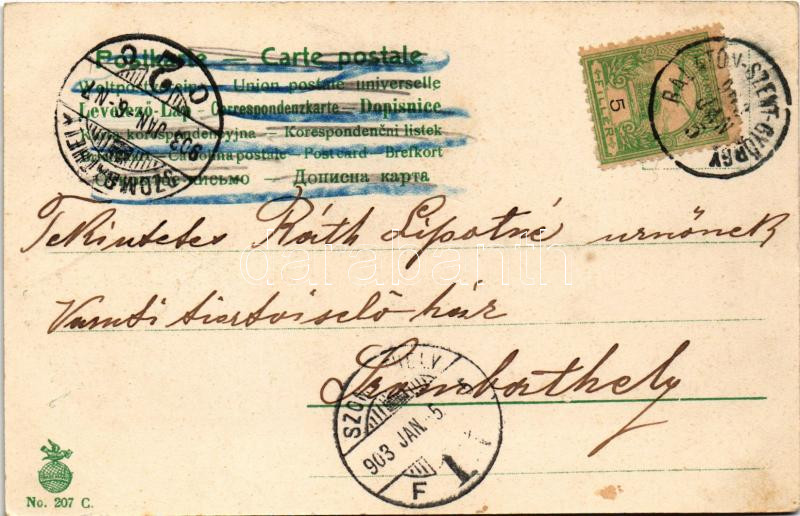 Postkarte — Carte postale
Weltpostverein — Union postale universelle
Levelező-Lap — Correspondenzkarte — Dopisnice
Karta korespondencyjna — Korespondenční listek
Cartolina postale — Postcard — Brefkort
письмо — Дописна карта
5
FILLER
BALATON-SZENT-GYÖRGY
JAN
SZOMBATHELY
903 JAN. 6. N7
C 2 C
Tekintetes Ráth Lipótné urnőnek
Vasuti tisztviselő ház
Szombathely
SZOMBATHELY
903 JAN. 5
F
1
darabanth
No. 207 C.